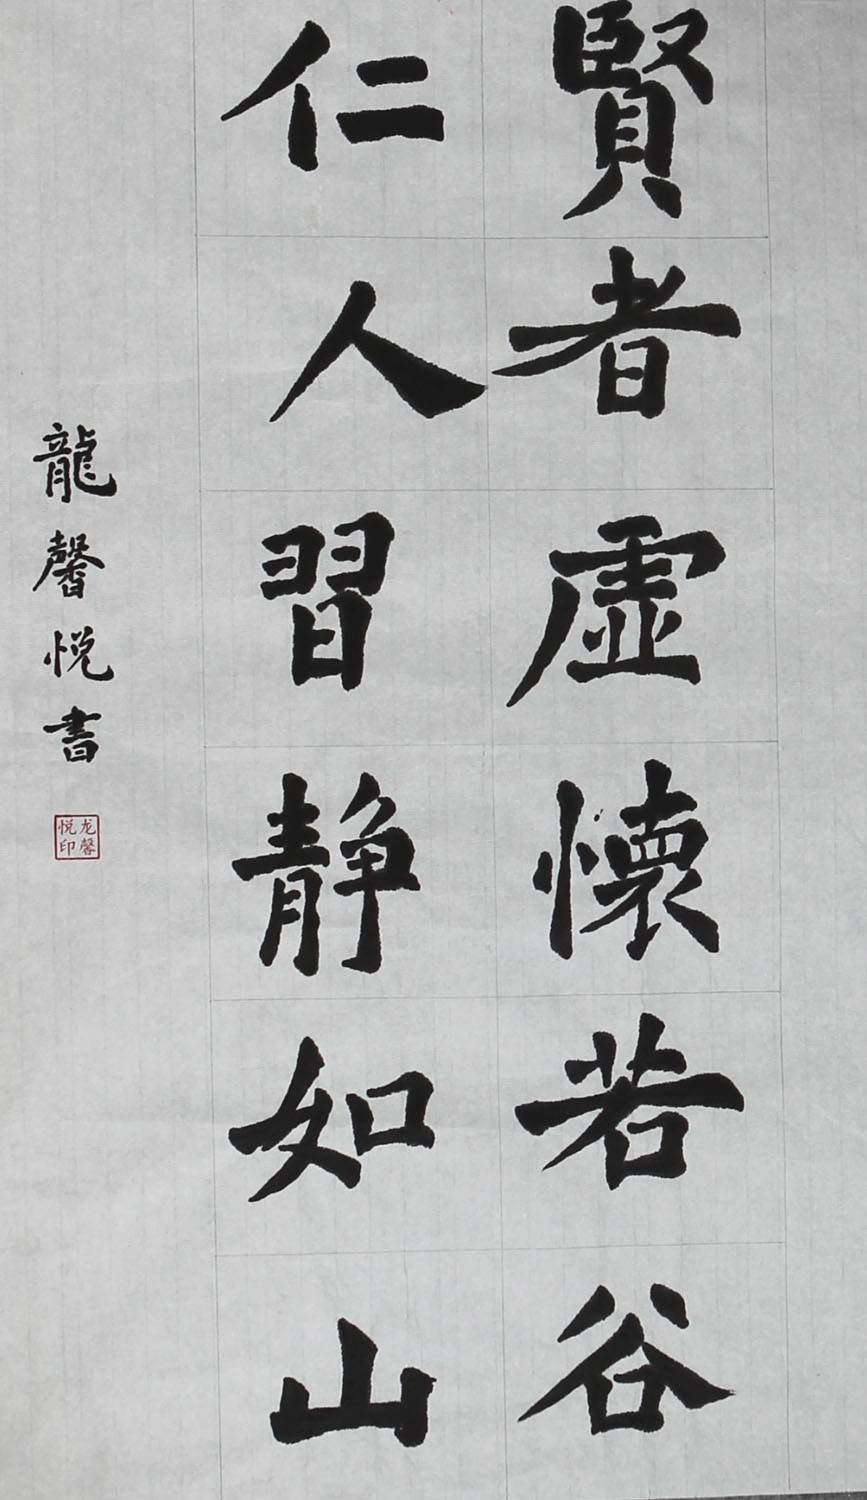 賢者虛懷若谷
仁人習静如山
龍馨悦書
龙馨
悦印